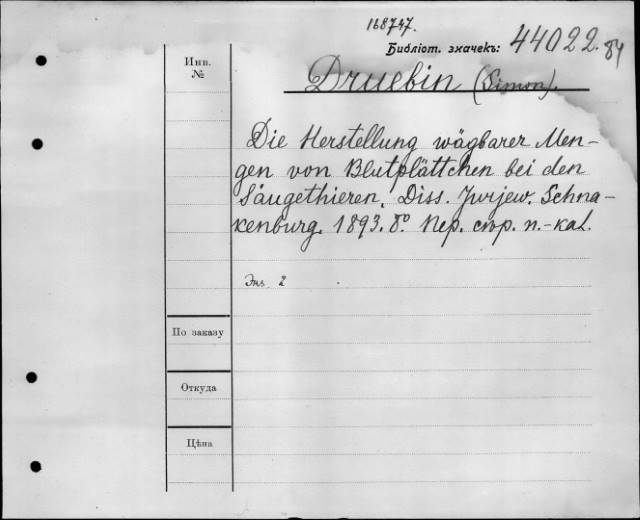 168747.
Библіот. значекъ: 44022. 84
Инв.
№
Druebin (Simon).
Die Herstellung wägbarer Men-
gen von Blutplättchen bei den
Säugethieren. Diss. Jurjew. Schna-
kenburg. 1893. 8° Пер. стр. n.-kal.
Экз. 2
По заказу
Откуда
Цѣна